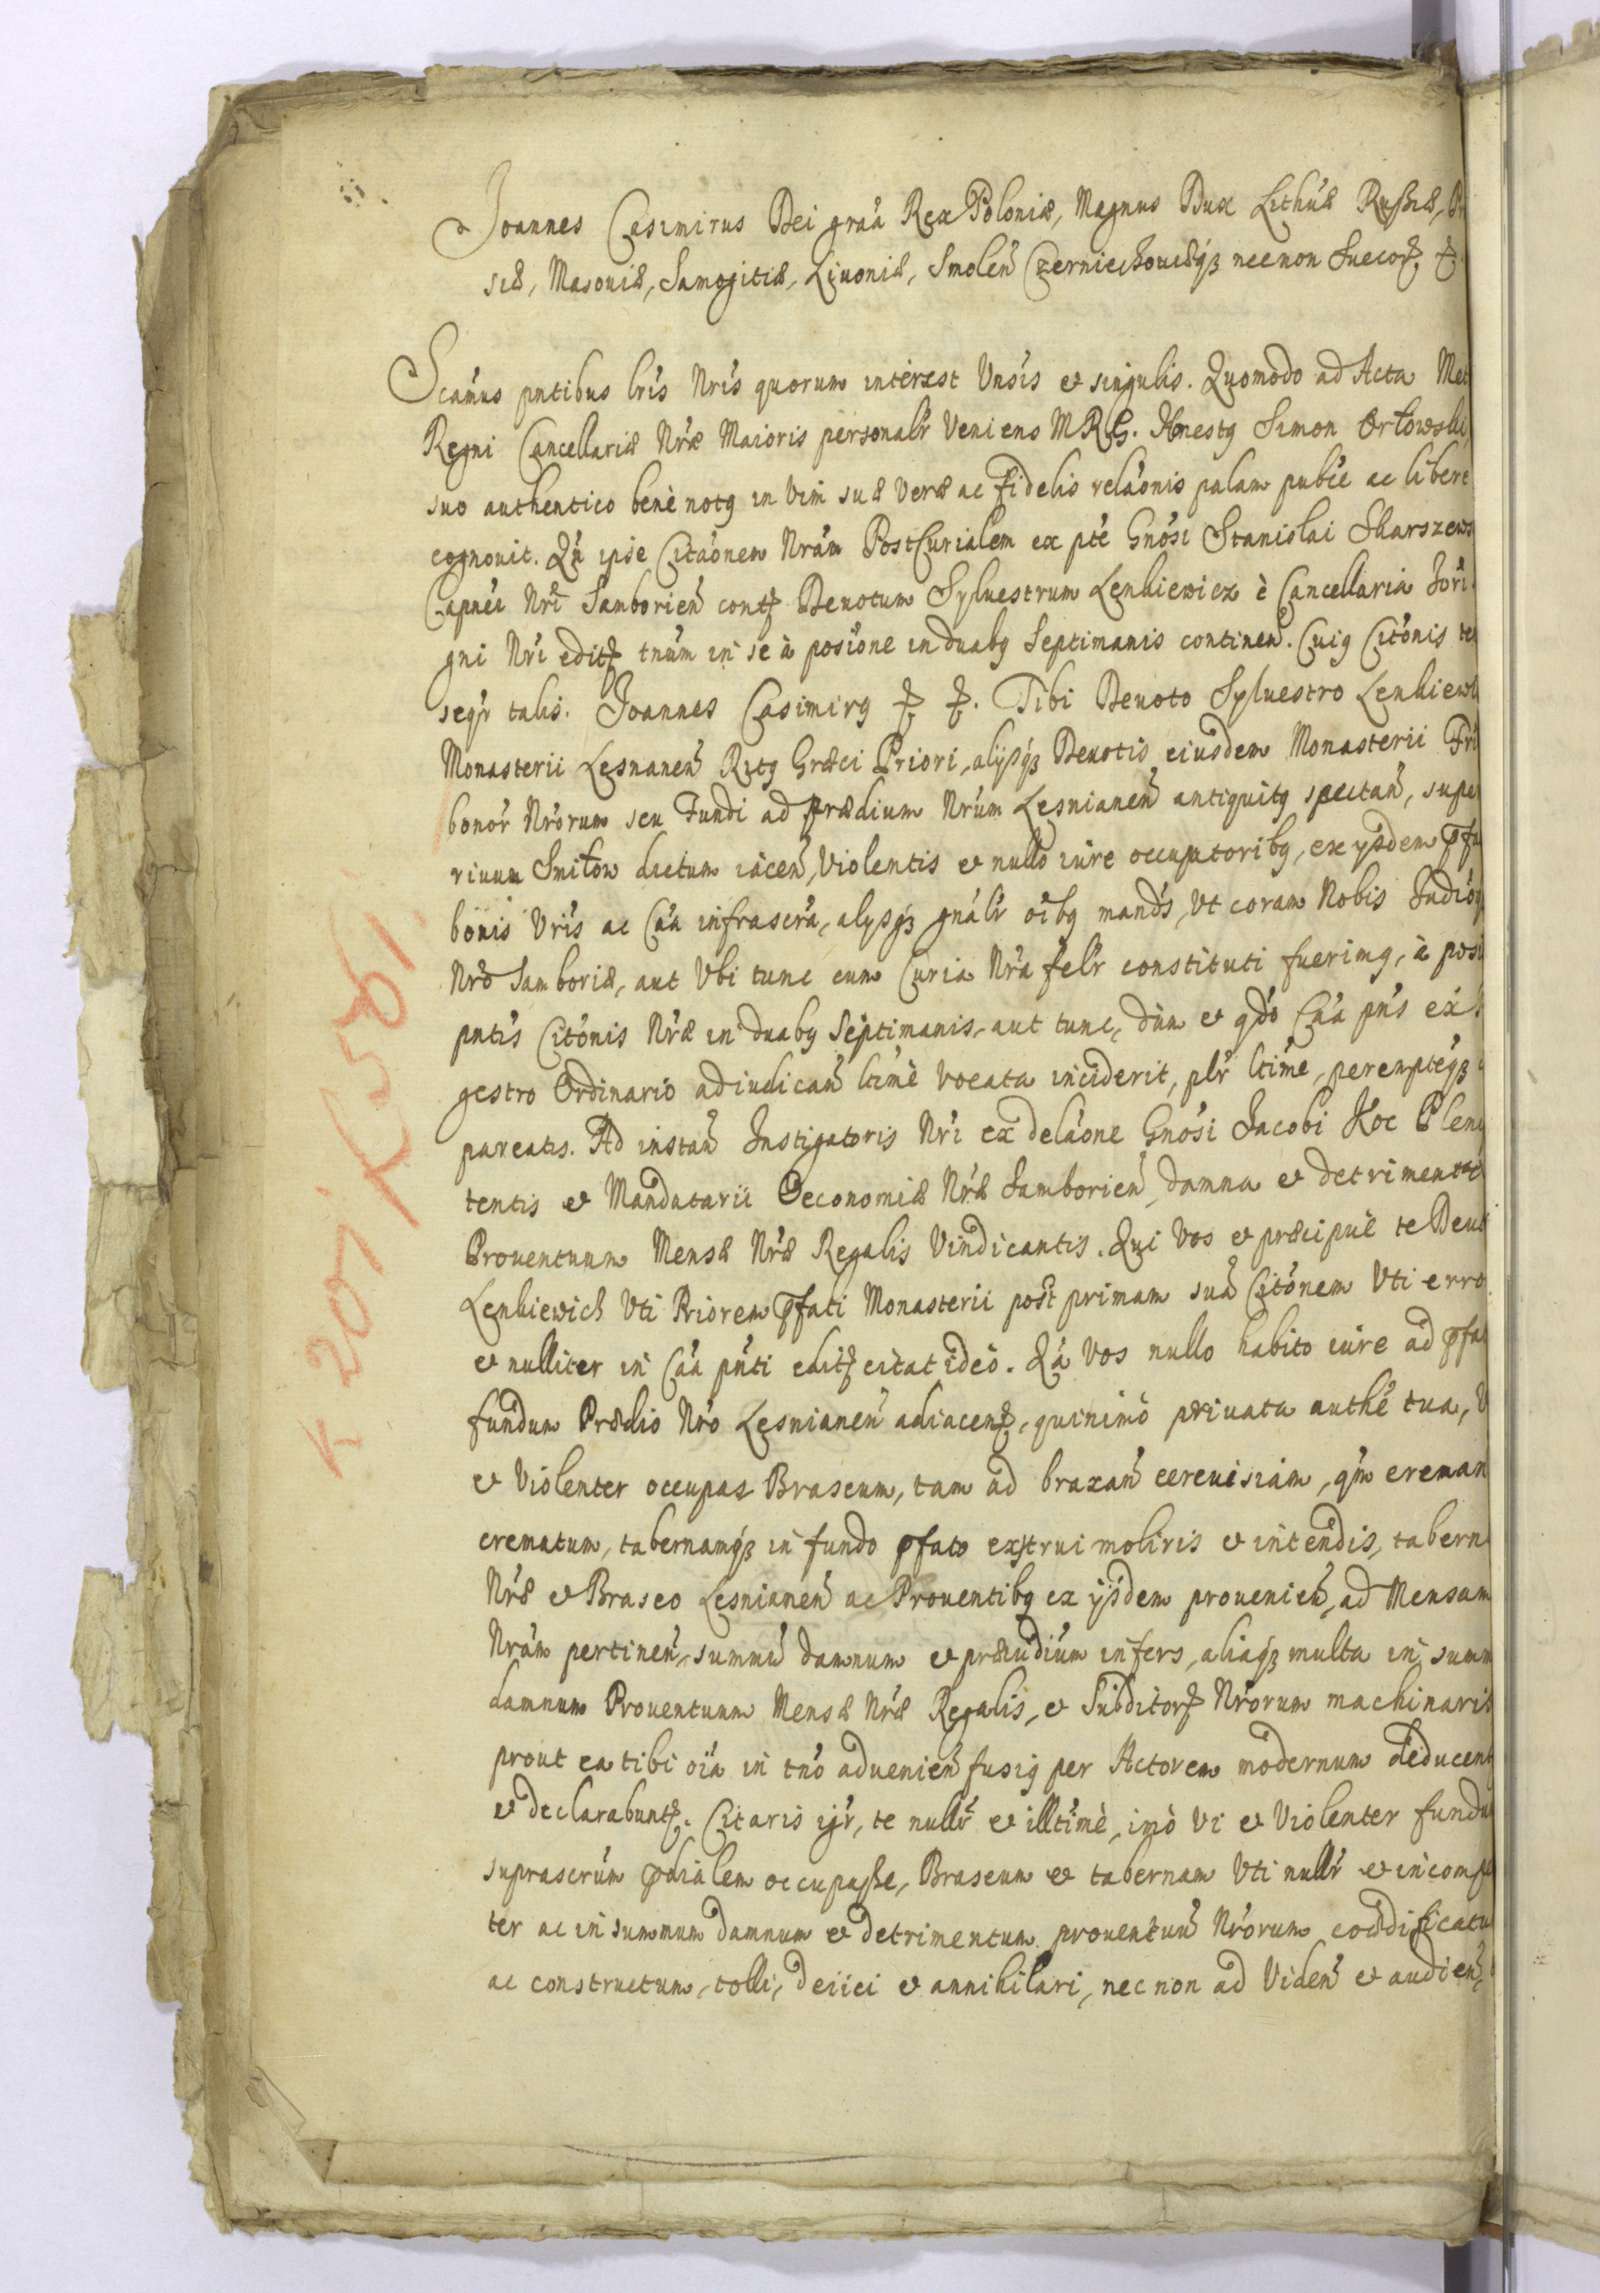 Joannes Casimirus Dei graâ Rex Poloniæ, Magnus Dux Lithuæ Russiæ, Pr
siæ, Masouiæ, Samogitiæ, Liuoniæ, Smolen Czerniechouięq3 necnon Suecor
Scamus pntibus lris Nris quorum interest Vnsis et singulis. Quomodo ad Acta Met
Regni Cancellariæ Nræ Maioris personalr Veniens MRG. Honestq Simon Orłowski
suo authentico benè notq in Vim suæ Veræ ac fidelis relaonis palam publce ac libere
cognouit. Qa ipse Citaonem Nram PostCurialem ex pte Gnosi Stanislai Skarszews
Capnei Nri Samborien contr Deuotum Syluestrum Lenkiewicz è Cancellaria
gni Nri edit tnum in se à posione in duabq Septimanis continen. Cuiq Citonis te
seqr talis. Joannes Casimirq Tibi Deuoto Syluestro Lenkiew
Monasterii Lesnanen Ritq Græci Priori, alijsq3 Deuotis eiusdem Monasterii Fr
bonor Nrorum seu Fundi ad prædium Nrum Lesnianen antiquitq spectan, supe
riuum Smiłow dictum iacen, Violentis et nullo iure occupatoribq, ex ijsdem pfa
bonis Vris ac Caa infrascra, alijsq3 gnalr oibq mands, Vt coram Nobis Judio
Nro Samboriæ, aut Vbi tunc cum Curia Nra felr constituti fuerimq, à posi
pntis Citonis Nræ in duabq Septimanis, aut tunc, dum et qdo Caa pns ex
gestro Ordinario adiudican ltimè vocata inciderit, plr ltime, perempteq3
pareatis. Ad instan Instigatoris Nri ex delaone Gnosi Jacobi Koc Pleni
tentis et Mandatarii Oeconomiæ Nræ Samborien, damna et detrimenta
Prouentuum Mensæ Nræ Regalis Vindicantis. Qui Vos et præcipuè te Deuo
Lenkiewich Vti Priorem pfati Monasterii post primam sua Citonem Vti erro
et nulliter in Caa pnti edit citat ideò. Qa Vos nullo habito iure ad pfa
fundum Prædio Nro Lesnianen adiacen, quinimò priuata authe tua, V
et Violenter occupas Braseum, tam ad braxan cereuisiam, qm creman
crematum, tabernamq3 in fundo pfato exstrui moliris et intendis, tabern
Nræ et Braseo Lesnianen ac Prouentibq ex ijsdem prouenien, ad Mensam
Nram pertinen, summu damnum et præiudium infers, aliaq3 multa in summ
damnum Prouentuum Mensæ Nræ Regalis, et Subditor Nrorum machinaris
prout ea tibi oia in tno aduenien fusiq per Actorem modernum deducent
et declarabunt. Citaris igr, te nullr et illtimè, imò Vi et Violenter fundu
suprascrum pdialem occupasse, Braseum et tabernam Vti nullr et incompe
ter ac in summum damnum et detrimentum prouentuu Nrorum coædificatu
ac constructum, tolli, deiici et annihilari, nec non ad Viden et audien,